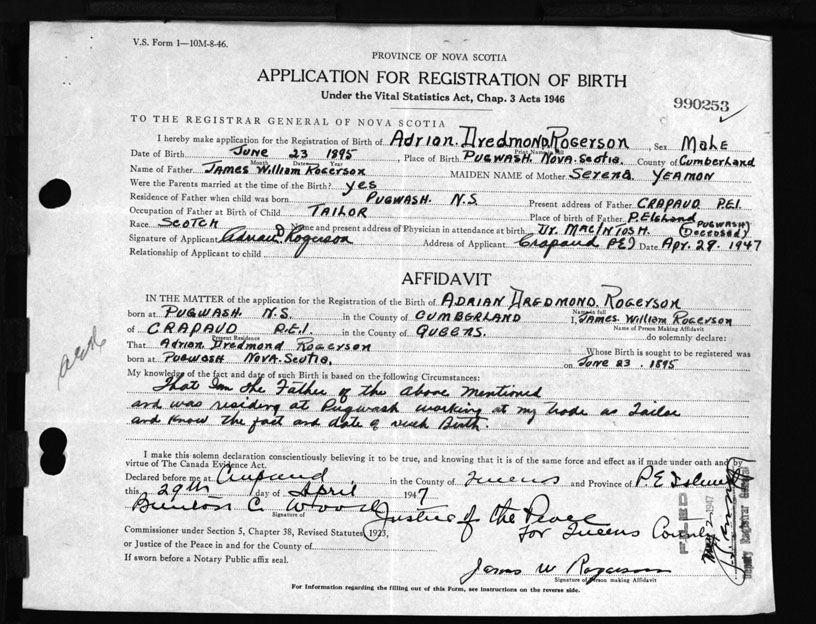 V.S. Form 1—10M-8-46.
PROVINCE OF NOVA SCOTIA
APPLICATION FOR REGISTRATION OF BIRTH
Under the Vital Statistics Act, Chap. 3 Acts 1946
990253
TO THE REGISTRAR GENERAL OF NOVA SCOTIA
I hereby make application for the Registration of Birth of Adrian. Dredmond. Rogerson, Sex Male
Print Name in full
Date of Birth June 23 1895, Place of Birth Pugwash. Nova. Scotia. County of Cumberland
Month Date Year
Name of Father James William Rogerson MAIDEN NAME of Mother Serena. Yeamon
Were the Parents married at the time of the Birth? yes
Residence of Father when child was born Pugwash. N.S. Present address of Father Crapaud P.E.I.
Occupation of Father at Birth of Child Tailor Place of birth of Father P.E Island
Race Scotch Name and present address of Physician in attendance at birth Dr. MacIntosh. (Pugwash) (Deceased)
Signature of Applicant Adrian D Rogerson Address of Applicant Crapaud P.E.I Date Apr. 29. 1947
Relationship of Applicant to child
AFFIDAVIT
IN THE MATTER of the application for the Registration of the Birth of Adrian Dredmond. Rogerson
Name in full
born at Pugwash. N.S. in the County of Cumberland I, James William Rogerson
Name of Person Making Affidavit
of Crapaud P.E.I. in the County of Queens. do solemnly declare:
Present Residence
That Adrian. Dredmond Rogerson Whose Birth is sought to be registered was
born at Pugwash Nova. Scotia. on June 23. 1895
My knowledge of the fact and date of such Birth is based on the following Circumstances:
That Im the Father of the above mentioned
and was residing at Pugwash working at my trade as Tailor
and know the fact and date of such Birth.
I make this solemn declaration conscientiously believing it to be true, and knowing that it is of the same force and effect as if made under oath and by
virtue of The Canada Evidence Act.
Declared before me at Crapaud in the County of Queens and Province of P.E Island
this 29th day of April 1947
C. Wood Justice of the Peace
Signature of
for Queens County
Commissioner under Section 5, Chapter 38, Revised Statutes 1923,
or Justice of the Peace in and for the County of
If sworn before a Notary Public affix seal.
James W Rogerson
Signature of Person making Affidavit
FILED
May 2 1947
Deputy Registrar General
For Information regarding the filling out of this Form, see instructions on the reverse side.